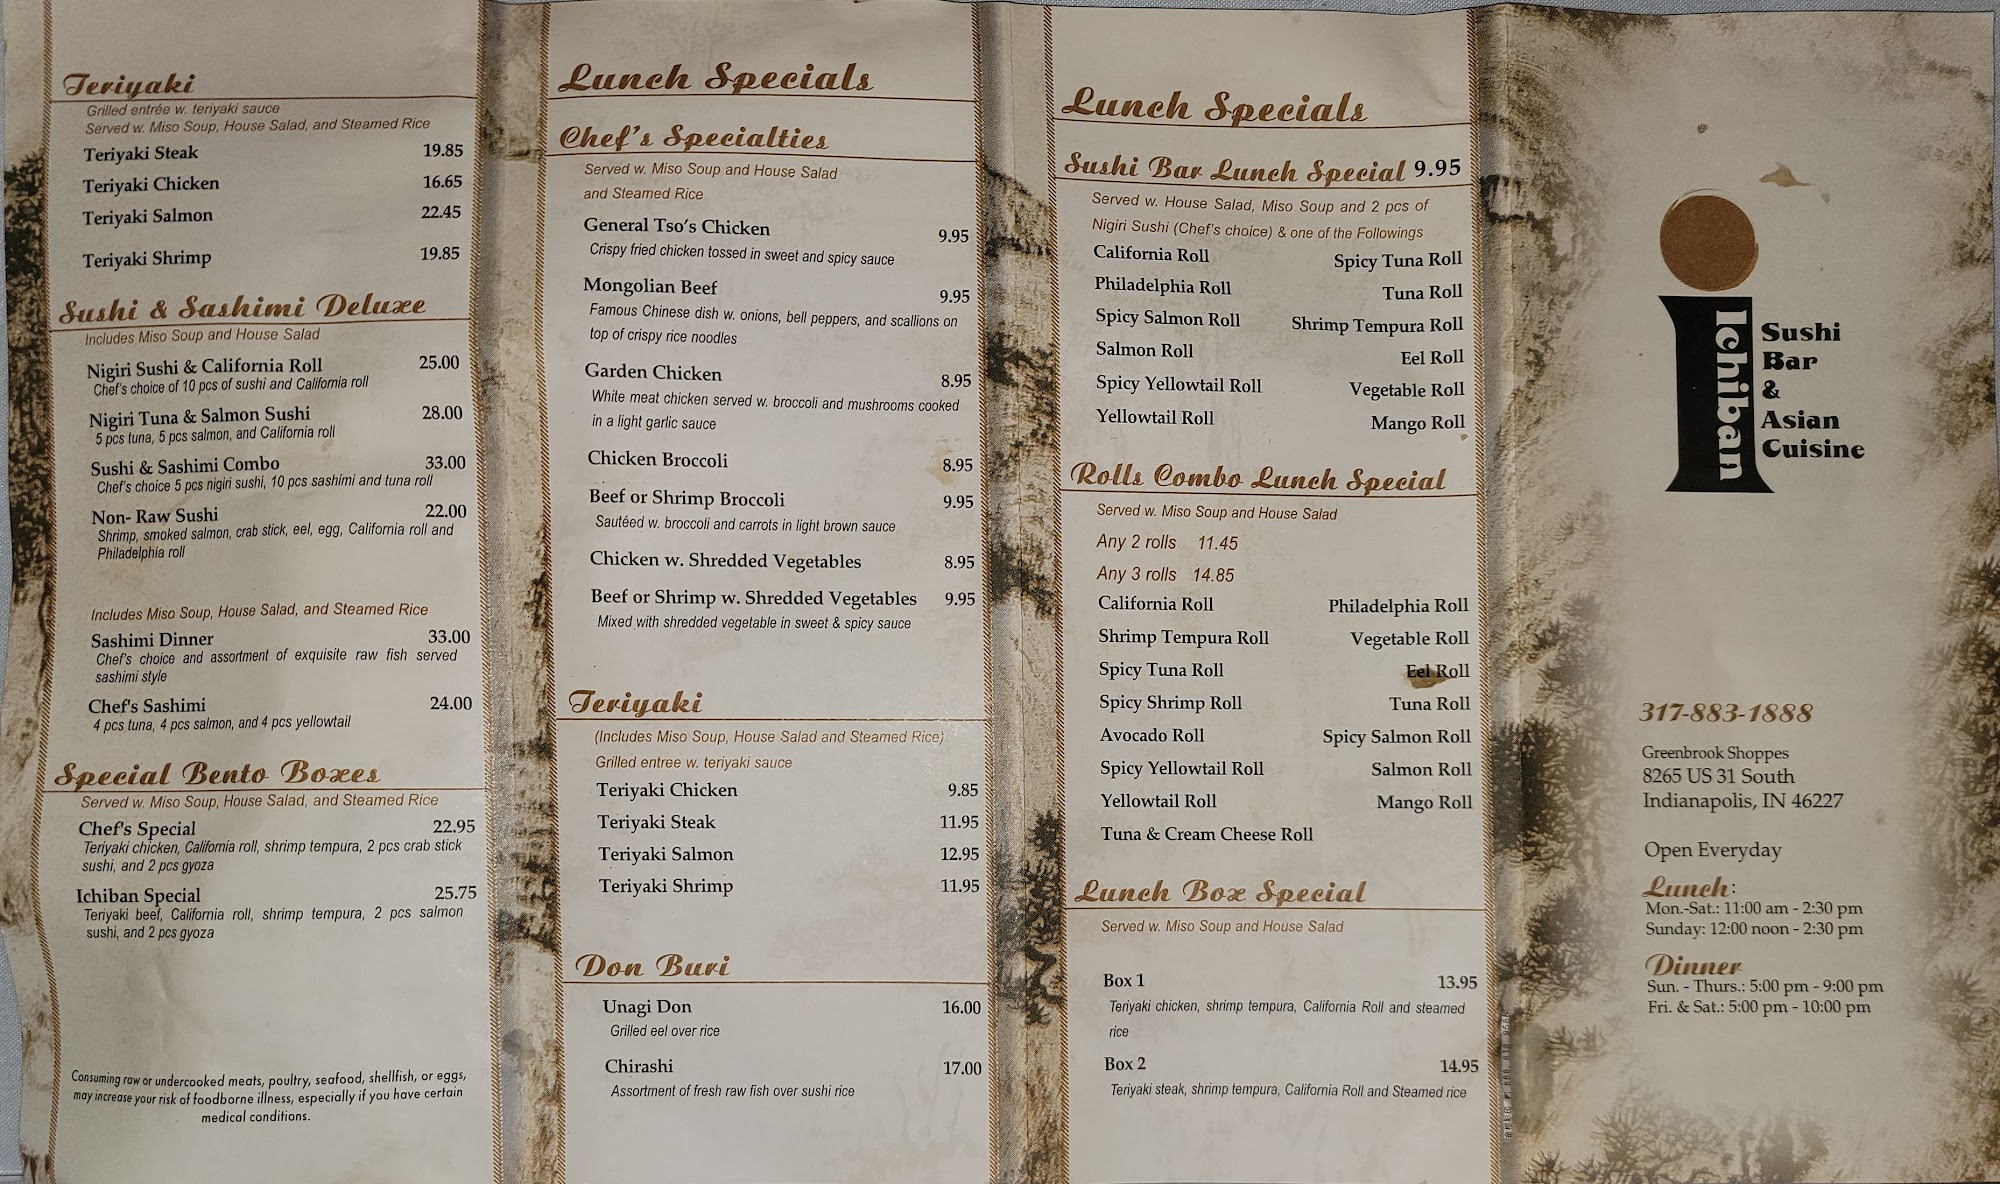 Teriyaki
Grilled entrée w. teriyaki sauce
Served w. Miso Soup, House Salad, and Steamed Rice
Teriyaki Steak 19.85
Teriyaki Chicken 16.65
Teriyaki Salmon 22.45
Teriyaki Shrimp 19.85
Sushi & Sashimi Deluxe
Includes Miso Soup and House Salad
Nigiri Sushi & California Roll 25.00
Chef's choice of 10 pcs of sushi and California roll
Nigiri Tuna & Salmon Sushi 28.00
5 pcs tuna, 5 pcs salmon, and California roll
Sushi & Sashimi Combo 33.00
Chef's choice 5 pcs nigiri sushi, 10 pcs sashimi and tuna roll
Non- Raw Sushi 22.00
Shrimp, smoked salmon, crab stick, eel, egg, California roll and
Philadelphia roll
Includes Miso Soup, House Salad, and Steamed Rice
Sashimi Dinner 33.00
Chef's choice and assortment of exquisite raw fish served
sashimi style
Chef's Sashimi 24.00
4 pcs tuna, 4 pcs salmon, and 4 pcs yellowtail
Special Bento Boxes
Served w. Miso Soup, House Salad, and Steamed Rice
Chef's Special 22.95
Teriyaki chicken, California roll, shrimp tempura, 2 pcs crab stick
sushi, and 2 pcs gyoza
Ichiban Special 25.75
Teriyaki beef, California roll, shrimp tempura, 2 pcs salmon
sushi, and 2 pcs gyoza
Consuming raw or undercooked meats, poultry, seafood, shellfish, or eggs,
may increase your risk of foodborne illness, especially if you have certain
medical conditions.
Lunch Specials
Chef's Specialties
Served w. Miso Soup and House Salad
and Steamed Rice
General Tso's Chicken 9.95
Crispy fried chicken tossed in sweet and spicy sauce
Mongolian Beef 9.95
Famous Chinese dish w. onions, bell peppers, and scallions on
top of crispy rice noodles
Garden Chicken 8.95
White meat chicken served w. broccoli and mushrooms cooked
in a light garlic sauce
Chicken Broccoli 8.95
Beef or Shrimp Broccoli 9.95
Sautéed w. broccoli and carrots in light brown sauce
Chicken w. Shredded Vegetables 8.95
Beef or Shrimp w. Shredded Vegetables 9.95
Mixed with shredded vegetable in sweet & spicy sauce
Teriyaki
(Includes Miso Soup, House Salad and Steamed Rice)
Grilled entree w. teriyaki sauce
Teriyaki Chicken 9.85
Teriyaki Steak 11.95
Teriyaki Salmon 12.95
Teriyaki Shrimp 11.95
Don Buri
Unagi Don 16.00
Grilled eel over rice
Chirashi 17.00
Assortment of fresh raw fish over sushi rice
Lunch Specials
Sushi Bar Lunch Special 9.95
Served w. House Salad, Miso Soup and 2 pcs of
Nigiri Sushi (Chef's choice) & one of the Followings
California Roll Spicy Tuna Roll
Philadelphia Roll Tuna Roll
Spicy Salmon Roll Shrimp Tempura Roll
Salmon Roll Eel Roll
Spicy Yellowtail Roll Vegetable Roll
Yellowtail Roll Mango Roll
Rolls Combo Lunch Special
Served w. Miso Soup and House Salad
Any 2 rolls 11.45
Any 3 rolls 14.85
California Roll Philadelphia Roll
Shrimp Tempura Roll Vegetable Roll
Spicy Tuna Roll Eel Roll
Spicy Shrimp Roll Tuna Roll
Avocado Roll Spicy Salmon Roll
Spicy Yellowtail Roll Salmon Roll
Yellowtail Roll Mango Roll
Tuna & Cream Cheese Roll
Lunch Box Special
Served w. Miso Soup and House Salad
Box 1 13.95
Teriyaki chicken, shrimp tempura, California Roll and steamed
rice
Box 2 14.95
Teriyaki steak, shrimp tempura, California Roll and Steamed rice
Ichiban
Sushi
Bar
&
Asian
Cuisine
317-883-1888
Greenbrook Shoppes
8265 US 31 South
Indianapolis, IN 46227
Open Everyday
Lunch:
Mon.-Sat.: 11:00 am - 2:30 pm
Sunday: 12:00 noon - 2:30 pm
Dinner
Sun. - Thurs.: 5:00 pm - 9:00 pm
Fri. & Sat.: 5:00 pm - 10:00 pm